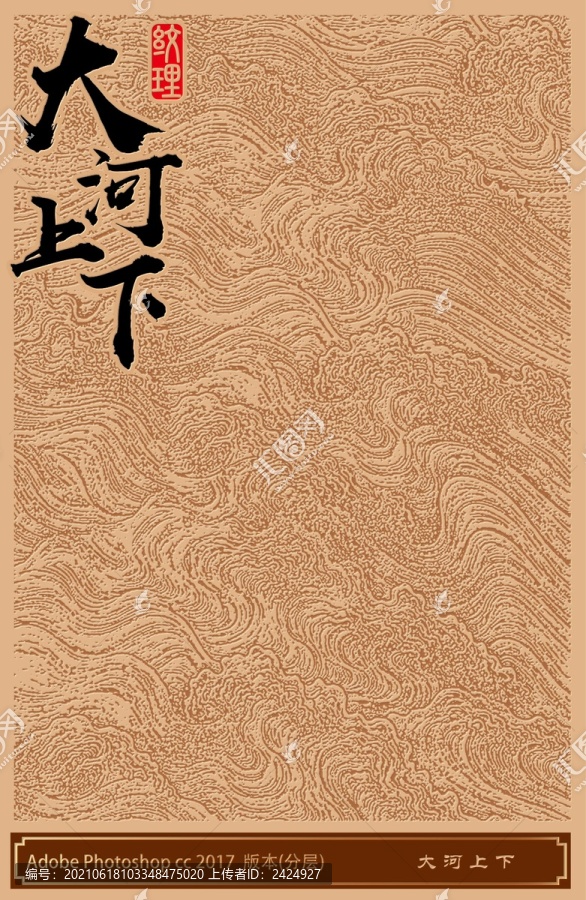 大河上下
纹理
汇图网
Adobe Photoshop cc 2017 版本(分层)
大河上下
编号：20210618103348475020 上传者ID：2424927